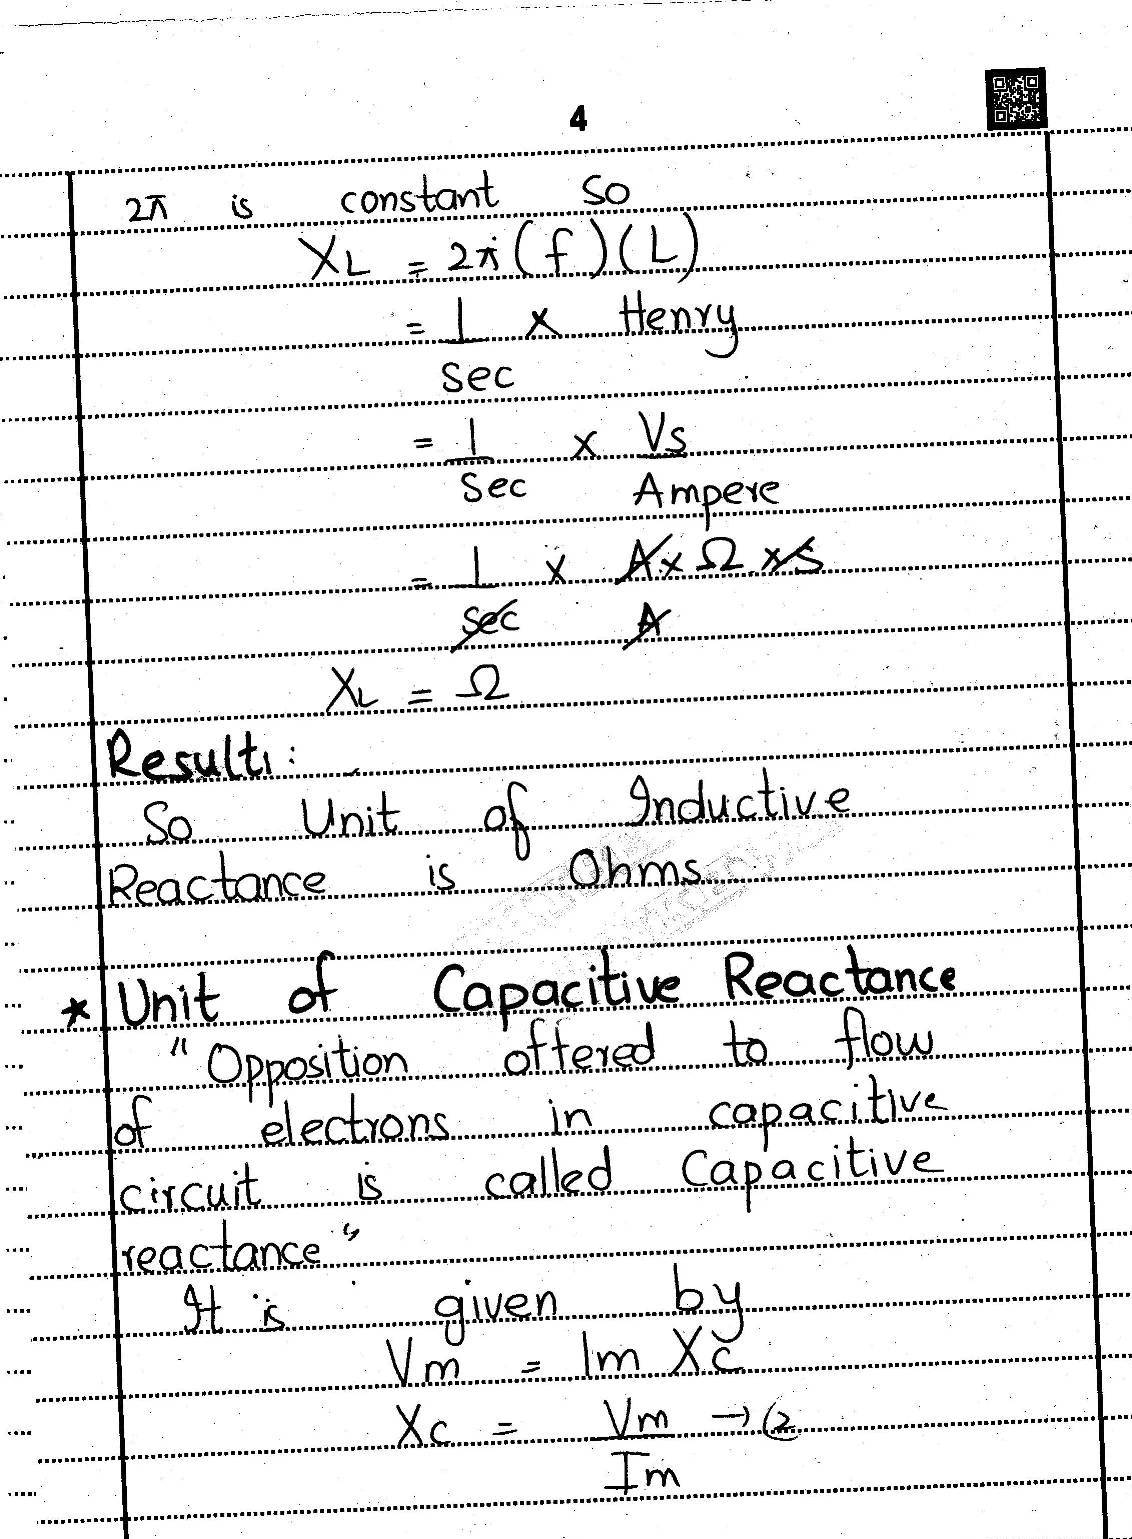 4
2π is constant So
XL = 2π(f)(L)
= 1/Sec × Henry
= 1/Sec × Vs/Ampere
= 1/sec × A×Ω×s/A
XL = Ω
Result:
So Unit of Inductive
Reactance is Ohms.
* Unit of Capacitive Reactance
"Opposition offered to flow
of electrons in capacitive
circuit is called Capacitive
reactance"
It is given by
Vm = Im Xc
Xc = Vm/Im → 2